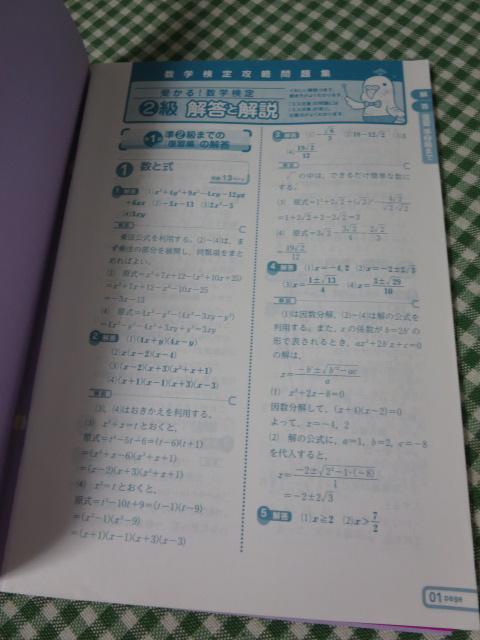 数学検定攻略問題集
受かる!数学検定
②級 解答と解説
解答
第1章 準2級までの復習編 の解答
1 数と式
1 解答 (1) x²+4y²+9z²-4xy-12yz
+6zx (2) -3x-13 (3) 2x²-3
(4) 3xy
解説
乗法公式を利用する。(2)~(4)は、ま
ず乗法の部分を展開し、同類項をまと
めればよい。
(2) 原式=x²+7x+12-(x²+10x+25)
=x²+7x+12-x²-10x-25
=-3x-13
(4) 原式=4x²-y²-(4x²-3xy-y²)
=4x²-y²-4x²+3xy+y²=3xy
2 解答 (1) (4x+y)(4x-y)
(2) x(x-2)(x-4)
(3) (x-2)(x+3)(x²+x+1)
(4) (x+1)(x-1)(x+3)(x-3)
解説
(3)、(4)はおきかえを利用する。
(3) x²+x=tとおくと、
原式=t²-5t-6=(t-6)(t+1)
=(x²+x-6)(x²+x+1)
=(x-2)(x+3)(x²+x+1)
(4) x²=tとおくと、
原式=t²-10t+9=(t-1)(t-9)
=(x²-1)(x²-9)
=(x+1)(x-1)(x+3)(x-3)
3 解答 (2) 18-12√2 (3) 3
(4) 19√2/12
解説
√ の中は、できるだけ簡単な数に
する。
(3) 原式=1²+2√2+(√2)²-4√2/√2×√2
=1+2√2+2-2√2=3
(4) 原式=3√2-3√2/4-2√2/3
=19√2/12
4 解答 (1) x=-4, 2 (2) x=-2±2√3
(3) x=1±√13/4 (4) x=3±√29/10
解説
(1)は因数分解、(2)~(4)は解の公式を
利用する。また、xの係数がb=2b′の
形で表されるとき、ax²+2b′x+c=0
の解は、
x=-b′±√b′²-ac/a
(1) x²+2x-8=0
因数分解して、(x+4)(x-2)=0
よって、x=-4, 2
(2) 解の公式に、a=1, b=2, c=-8
を代入すると、
x=-2±√2²-1·(-8)/1
=-2±2√3
5 解答 (1) x≧2 (2) x>7/2
01 page